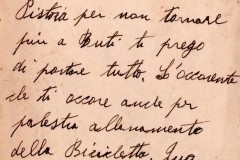 Pistoia per non tornare
piu a Buti te prego
di portare tutto. L'occorente
che ti occore anche per
palestra allenamento
della Bicicletta